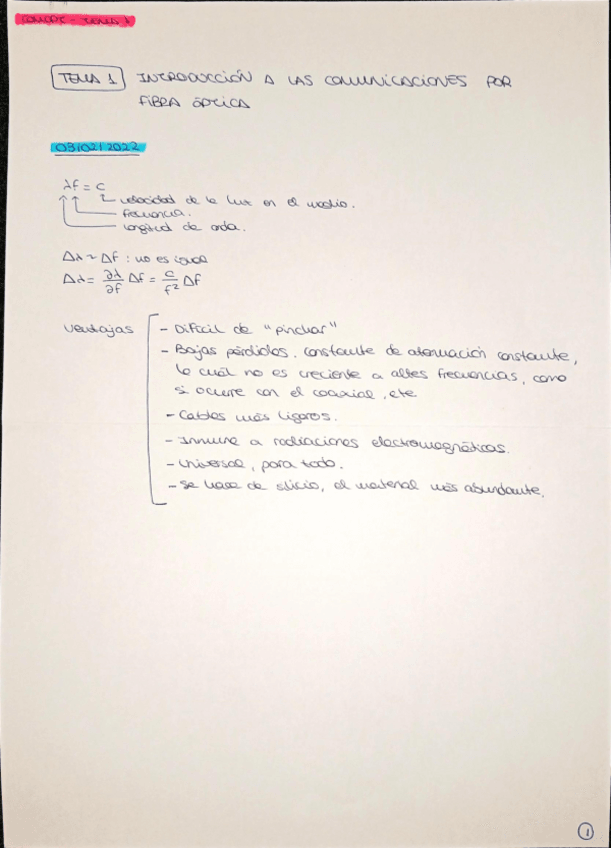 TEMA 1
TEMA 1 INTRODUCCIÓN A LAS COMUNICACIONES POR
FIBRA ÓPTICA
03/02/2022
λf = c
velocidad de la luz en el medio.
frecuencia.
longitud de onda.
Δλ ~ Δf : no es igual
Δλ = ∂λ/∂f Δf = c/f² Δf
Ventajas
- Difícil de "pinchar"
- Bajas pérdidas, constante de atenuación constante,
lo cuál no es creciente a altas frecuencias, como
si ocurre con el coaxial, etc
- Cables más ligeros.
- Inmune a radiaciones electromagnéticas.
- Universal, para todo.
- Se hace de silicio, el material más abundante.
1